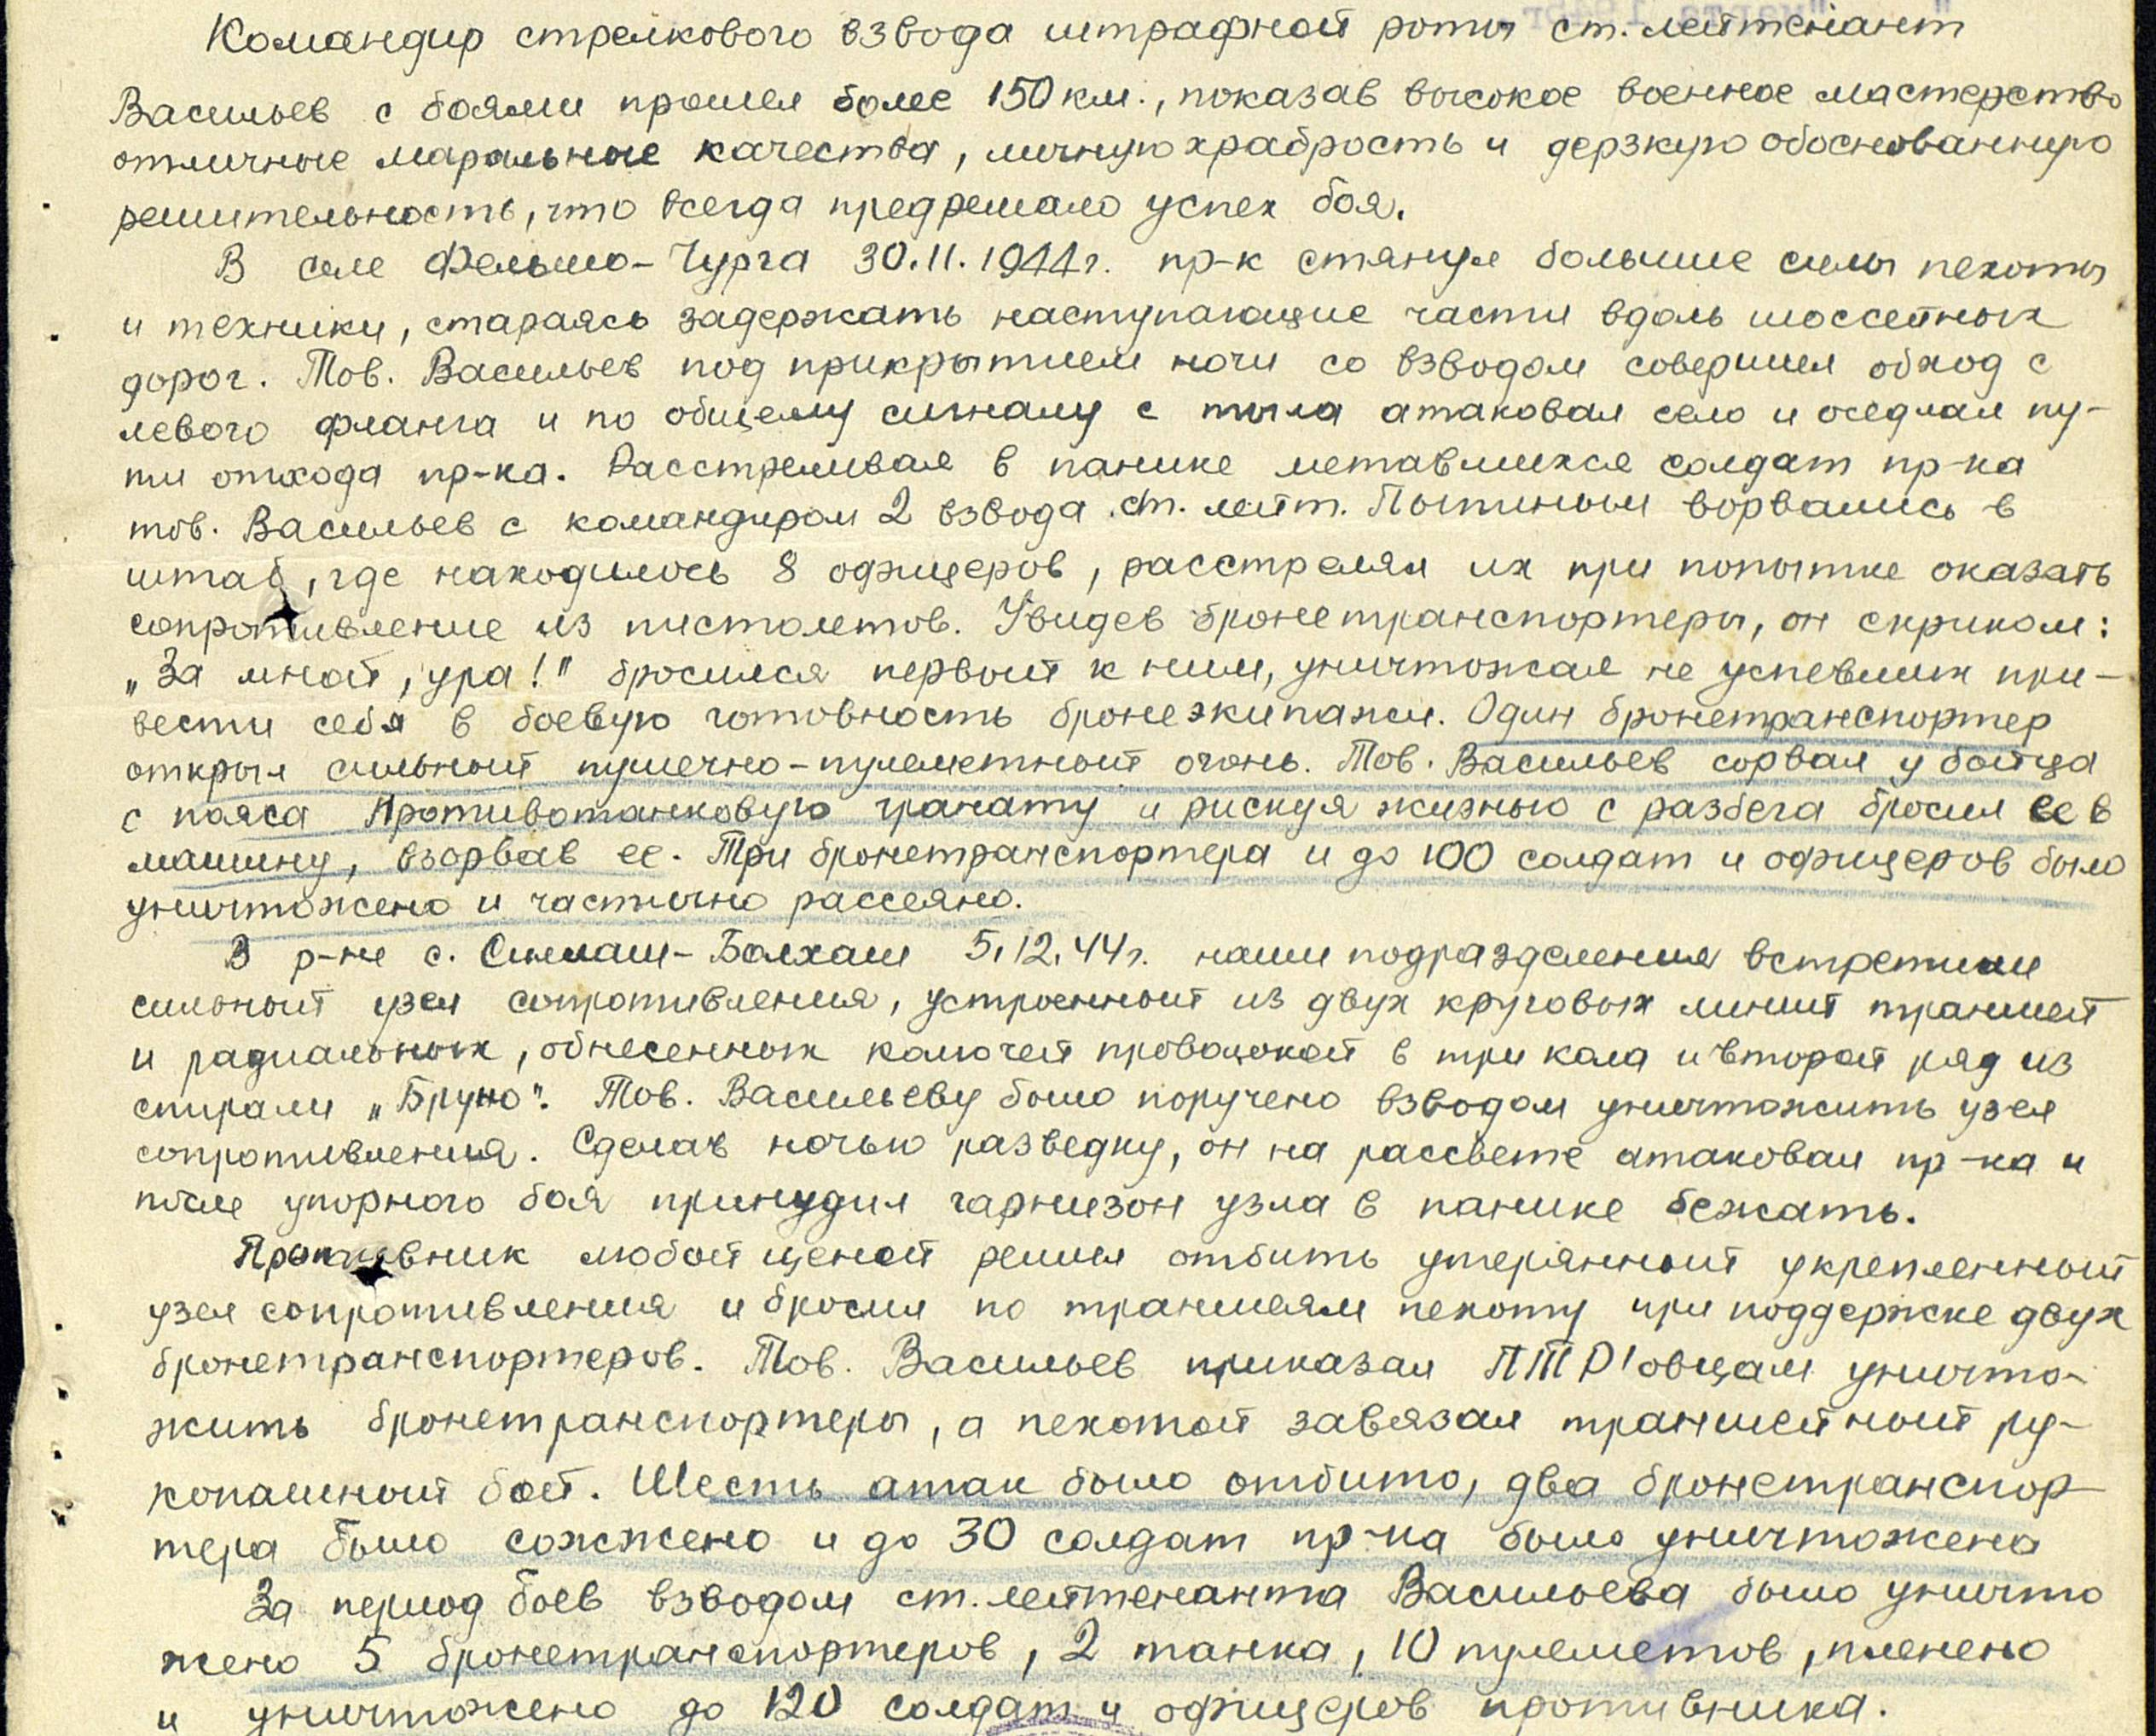 Командир стрелкового взвода штрафной роты ст. лейтенант
Васильев с боями прошел более 150 км., показав высокое военное мастерство
отличные маральные качества, личную храбрость и дерзкую обоснованную
решительность, что всегда предрешало успех боя.
В селе Фельшо-Чурга 30.11.1944г. пр-к стянул большие силы пехоты
и техники, стараясь задержать наступающие части вдоль шоссейных
дорог. Тов. Васильев под прикрытием ночи со взводом совершил обход с
левого фланга и по общему сигналу с тыла атаковал село и оседлал пу-
ти отхода пр-ка. Расстреливая в панике метавшихся солдат пр-ка
тов. Васильев с командиром 2 взвода ст. лейт. Пытиным ворвались в
штаб, где находилось 8 офицеров, расстрелял их при попытке оказать
сопротивление из пистолетов. Увидев бронетранспортеры, он скриком:
„За мной, ура!" бросился первый к ним, уничтожая не успевших при-
вести себя в боевую готовность бронеэкипажи. Один бронетранспортер
открыл сильный пушечно-пулеметный огонь. Тов. Васильев сорвал у бойца
с пояса противотанковую гранату и рискуя жизнью с разбега бросил ее в
машину, взорвав ее. Три бронетранспортера и до 100 солдат и офицеров было
уничтожено и частично рассеяно.
В р-не с. Силаш-Балхаш 5.12.44г. наши подразделения встретили
сильный узел сопротивления, устроенный из двух круговых линий траншей
и радиальных, обнесенных колючей проволокой в три кола и второй ряд из
спирали „Бруно". Тов. Васильеву было поручено взводом уничтожить узел
сопротивления. Сделав ночью разведку, он на рассвете атаковал пр-ка и
после упорного боя принудил гарнизон узла в панике бежать.
Противник любой ценой решил отбить утерянный укрепленный
узел сопротивления и бросил по траншеям пехоту при поддержке двух
бронетранспортеров. Тов. Васильев приказал ПТР'овцам уничто-
жить бронетранспортеры, а пехотой завязал траншейный ру-
копашный бой. Шесть атак было отбито, два бронетранспор-
тера было сожжено и до 30 солдат пр-ка было уничтожено
За период боев взводом ст. лейтенанта Васильева было уничто
жено 5 бронетранспортеров, 2 танка, 10 пулеметов, пленено
и уничтожено до 120 солдат и офицеров противника.